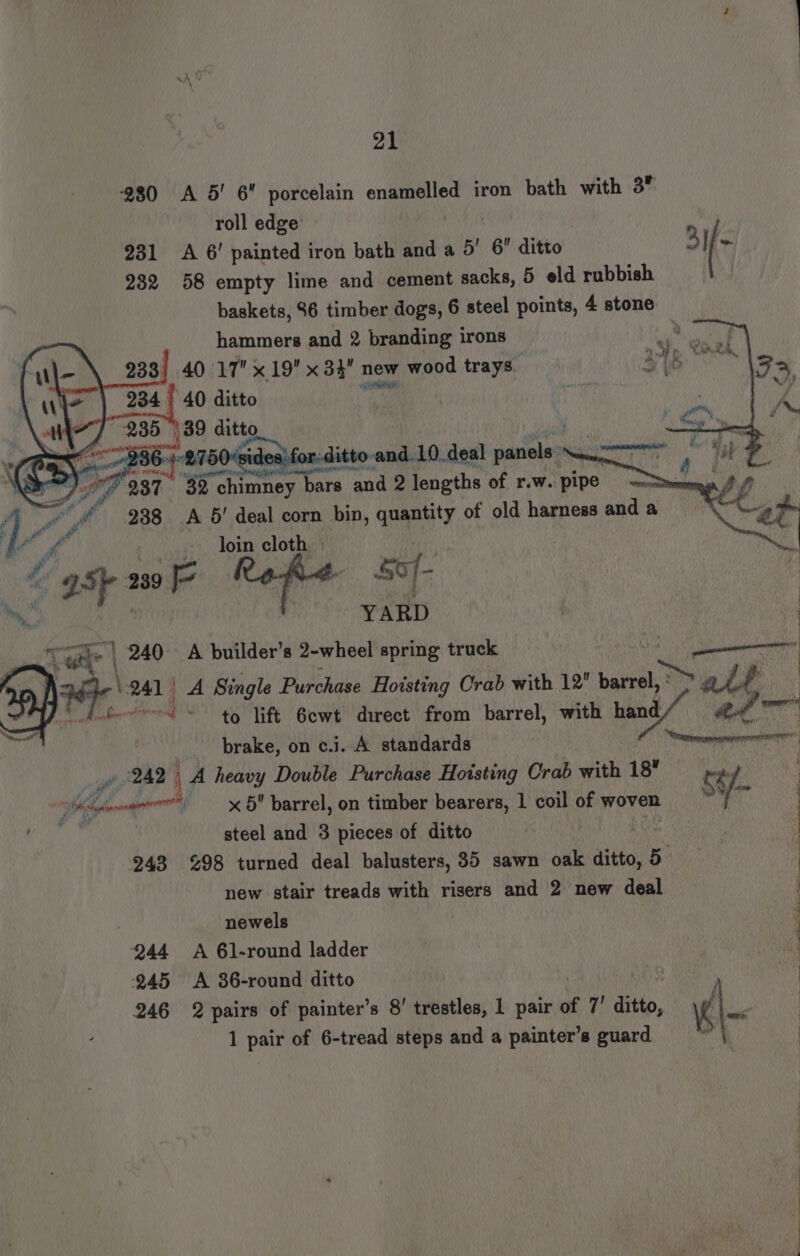 21
230 A 5' 6" porcelain enamelled iron bath with 3"
roll edge
231 A 6' painted iron bath and a 5' 6" ditto 31/-
232 58 empty lime and cement sacks, 5 old rubbish
baskets, 36 timber dogs, 6 steel points, 4 stone
hammers and 2 branding irons
233 40 17" x 19" x 3½" new wood trays
234 40 ditto
235 39 ditto
236 2750 sides for ditto and 10 deal panels
237 32 chimney bars and 2 lengths of r.w. pipe
238 A 5' deal corn bin, quantity of old harness and a
loin cloth
239 50/-
YARD
240 A builder's 2-wheel spring truck
241 A Single Purchase Hoisting Crab with 12" barrel,
to lift 6cwt direct from barrel, with hand
brake, on c.i. A standards
242 A heavy Double Purchase Hoisting Crab with 18"
x 5" barrel, on timber bearers, 1 coil of woven
steel and 3 pieces of ditto
243 298 turned deal balusters, 35 sawn oak ditto, 5
new stair treads with risers and 2 new deal
newels
244 A 61-round ladder
245 A 36-round ditto
246 2 pairs of painter's 8' trestles, 1 pair of 7' ditto,
1 pair of 6-tread steps and a painter's guard